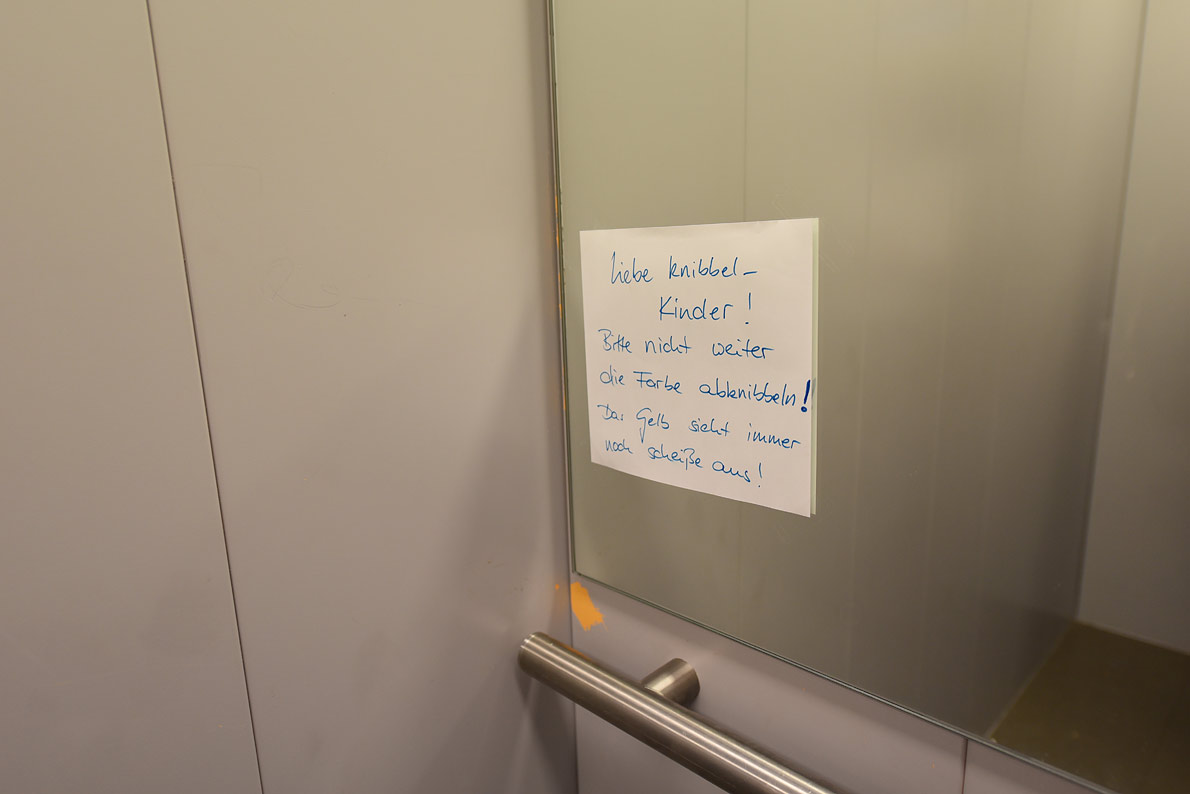 Liebe Knibbel-
Kinder!
Bitte nicht weiter
die Farbe abknibbeln!
Das Gelb sieht immer
noch scheiße aus!